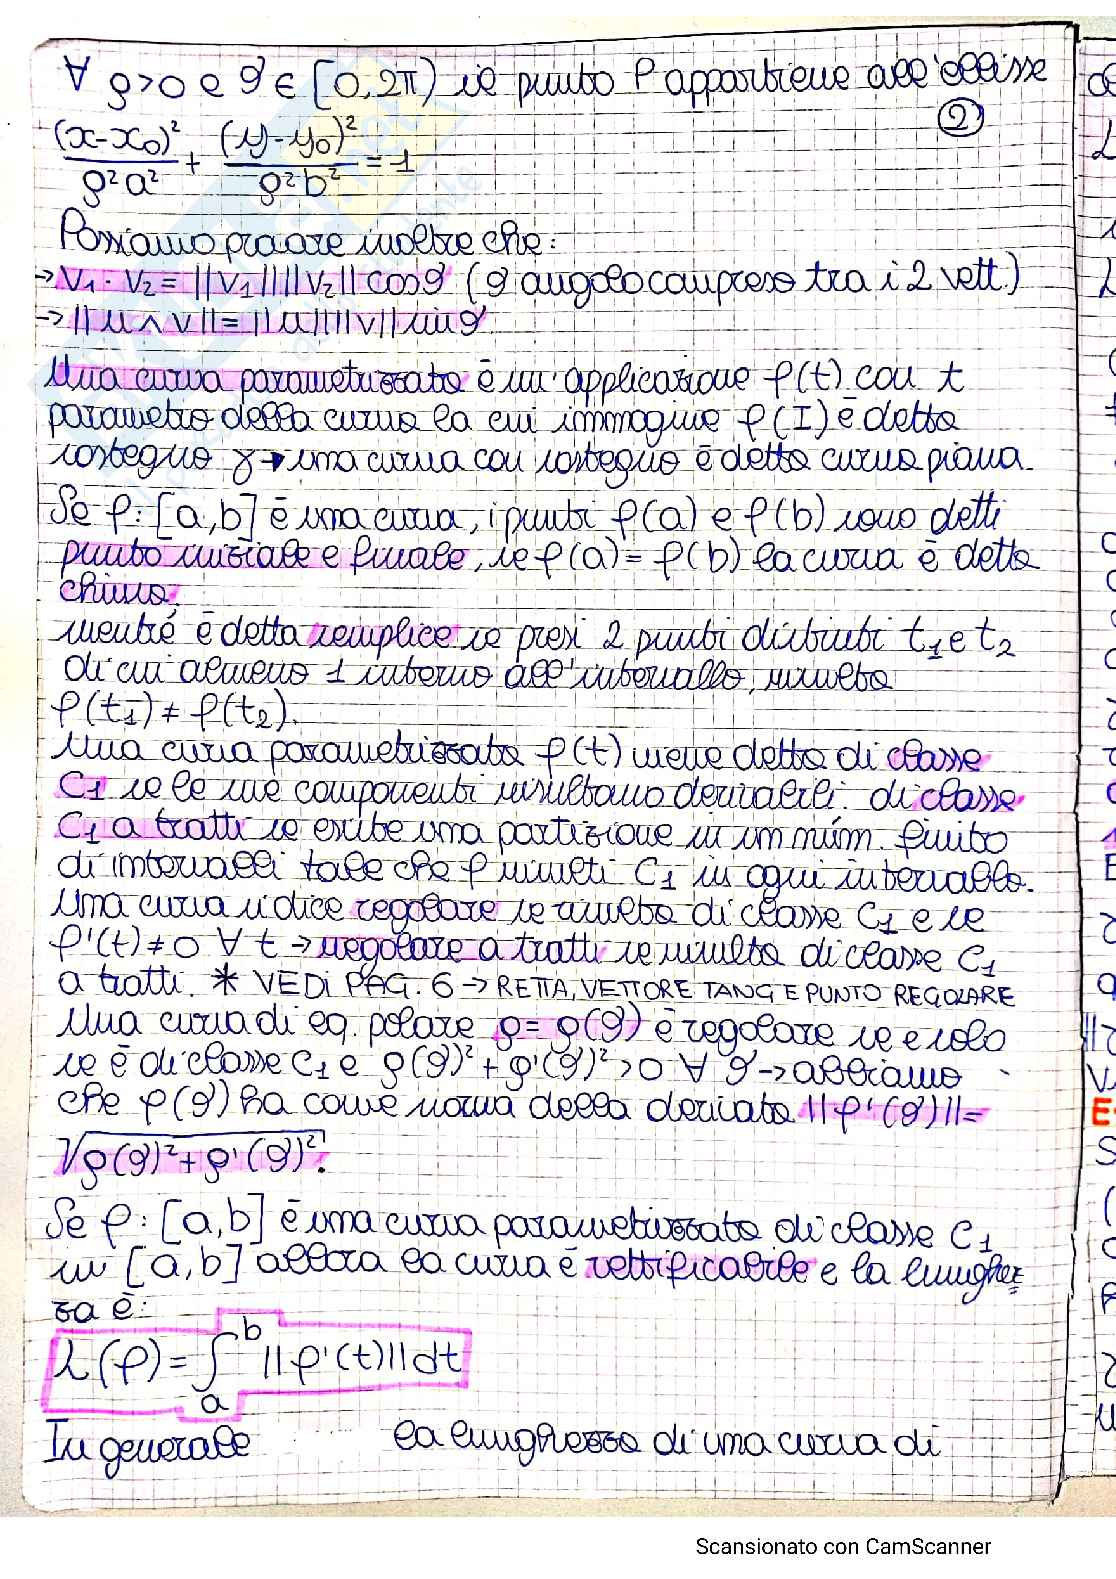 ∀ ρ>0 e ϑ ∈ [0,2π) il punto P appartiene all'ellisse
②
(x-x₀)²/ρ²a² + (y-y₀)²/ρ²b² = 1
Possiamo provare inoltre che:
→ V₁ · V₂ = ||V₁|| ||V₂|| cosϑ (ϑ angolo compreso tra i 2 vett.)
→ || u ∧ v || = ||u|| ||v|| sinϑ
Una curva parametrizzata è un'applicazione φ(t) con t
parametro della curva la cui immagine φ(I) è detta
sostegno γ → una curva con sostegno è detta curva piana.
Se φ: [a,b] è una curva, i punti φ(a) e φ(b) sono detti
punto iniziale e finale, se φ(a) = φ(b) la curva è detta
chiusa.
mentre è detta semplice se presi 2 punti distinti t₁ e t₂
di cui almeno 1 interno all'intervallo, risulta
φ(t₁) ≠ φ(t₂).
Una curva parametrizzata φ(t) viene detta di classe
C₁ se le sue componenti risultano derivabili. di classe
C₁ a tratti se esiste una partizione in un núm. finito
di intervalli tale che φ risulti C₁ in ogni intervallo.
Una curva si dice regolare se risulta di classe C₁ e se
φ'(t) ≠ 0 ∀ t → regolare a tratti se risulta di classe C₁
a tratti. * VEDI PAG. 6 → RETTA, VETTORE TANG E PUNTO REGOLARE
Una curva di eq. polare ρ = ρ(ϑ) è regolare se e solo
se è di classe C₁ e ρ(ϑ)² + ρ'(ϑ)² > 0 ∀ ϑ → abbiamo
che φ(ϑ) ha come norma della derivata ||φ'(ϑ)|| =
√ρ(ϑ)² + ρ'(ϑ)².
Se φ: [a,b] è una curva parametrizzata di classe C₁
in [a,b] allora la curva è rettificabile e la lunghez
za è:
L(φ) = ∫ₐᵇ ||φ'(t)|| dt
In generale la lunghezza di una curva di
Scansionato con CamScanner